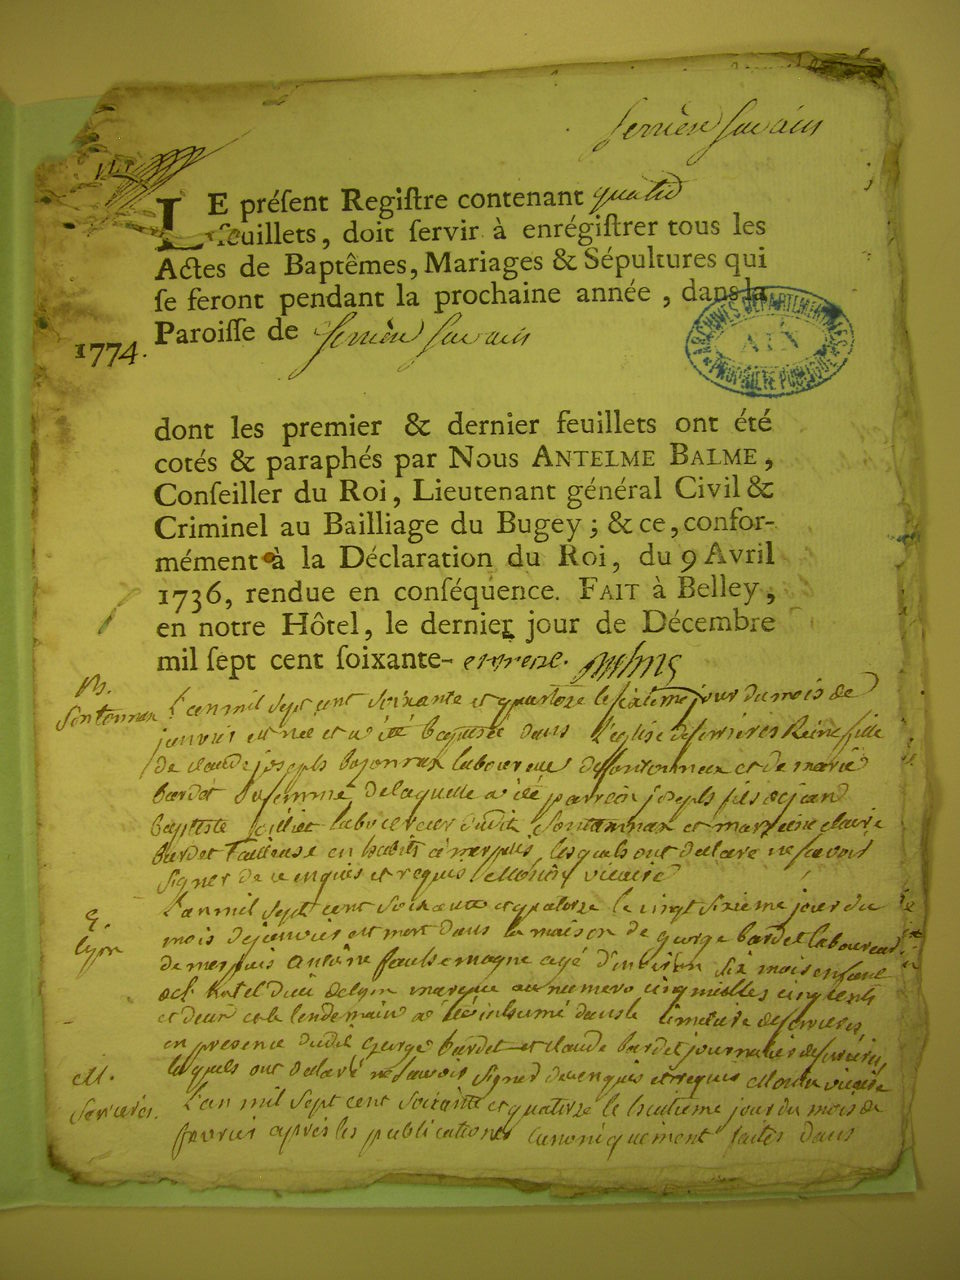 Serrière Savain
LE préſent Regiſtre contenant quatre
feuillets, doit ſervir à enrégiſtrer tous les
Actes de Baptêmes, Mariages & Sépultures qui
ſe feront pendant la prochaine année, dans la
Paroiſſe de Serrière Savain
1774.
ARCHIVES DEPARTEMENTALES
AIN
PROPRIÉTÉ PUBLIQUE
dont les premier & dernier feuillets ont été
cotés & paraphés par Nous ANTELME BALME,
Conſeiller du Roi, Lieutenant général Civil &
Criminel au Bailliage du Bugey; & ce, confor-
mément à la Déclaration du Roi, du 9 Avril
1736, rendue en conſéquence. FAIT à Belley,
en notre Hôtel, le dernier jour de Décembre
mil ſept cent ſoixante- et treze.
L'an mil sept cent soixante et quatorze le sixieme jour du mois de
janvier est née et a été baptisée dans l'eglise de serrieres Reine fille
de claude joseph laboureur et de marie
bardet sa femme de laquelle a été parrein joseph fils de jean
baptiste laboureur dudit et marreine claire
bardet Tailleuse en habits a merpuis, lesquels ont declaré ne scavoir
signer de ce enquis et requis vicaire
L'an mil sept cent soixante et quatorze le vingt sixieme jour du
lyon
mois de janvier est mort dans la maison de george bardet laboureur
de merpuis antoine agé d'environ dix mois enfant
de l'hotel dieu de lyon marqué au numero cinq milles cinq cents
et deux et le lendemain a été inhumé dans le cimetiere de serrieres,
en presence dudit george bardet et claude bardet journalier de serrieres,
lesquels ont declaré ne scavoir signer de ce enquis et requis vicaire
M.
Serrieres.
L'an mil sept cent soixante et quatorze le huitieme jour du mois de
fevrier après les publications canoniquement faites dans